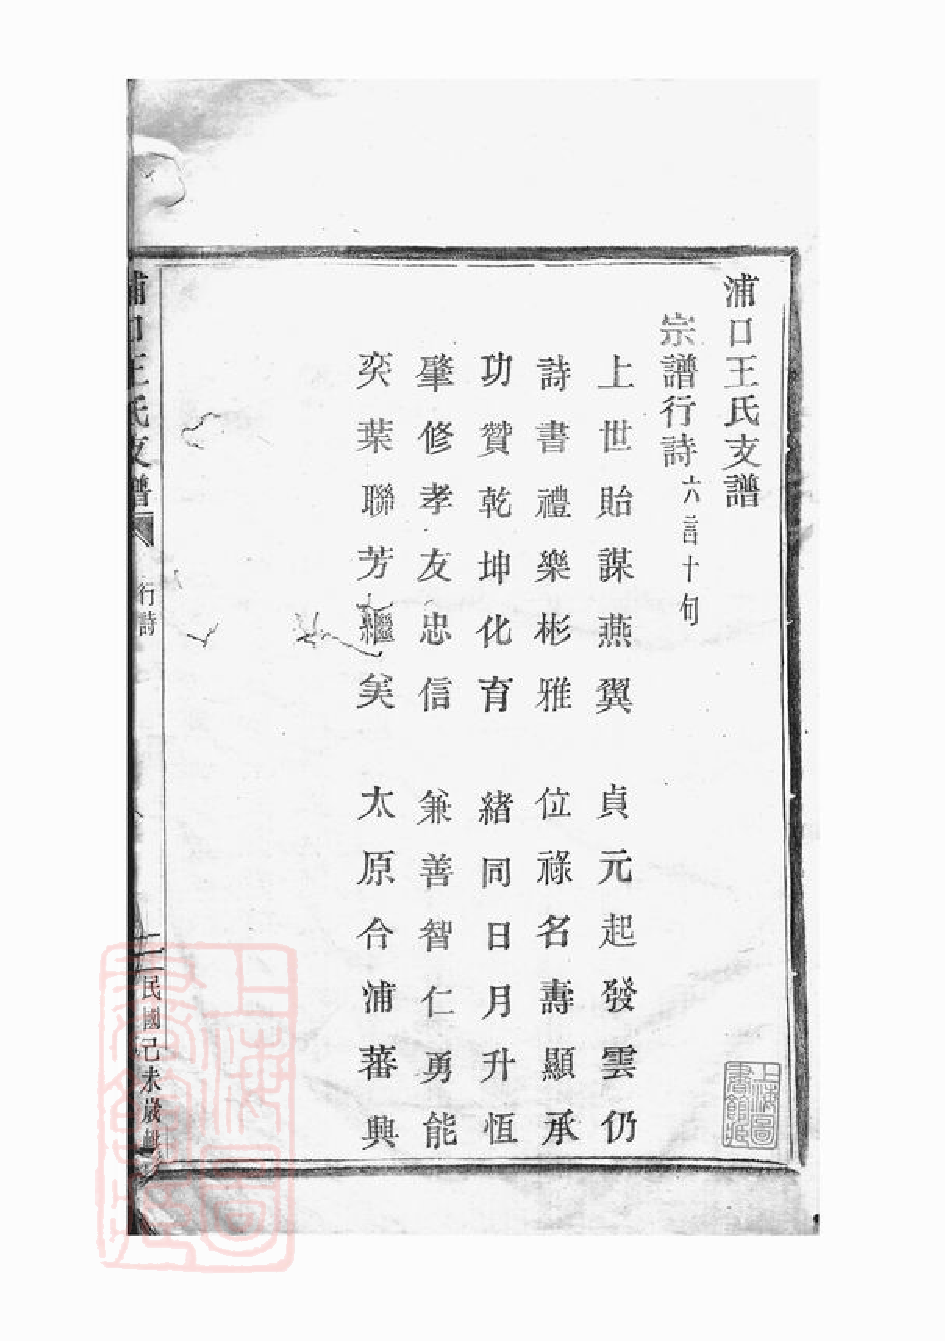 浦口王氏支譜
宗譜行詩 六言十句
上世貽謀燕翼 貞元起發雲仍
詩書禮樂彬雅 位祿名壽顯承
功贊乾坤化育 緒同日月升恆
肇修孝友忠信 兼善智仁勇能
奕葉聯芳繼美 太原合浦蕃興
浦口王氏支譜 行詩 二 民國己未歲
上海圖書館藏
上海圖書館藏